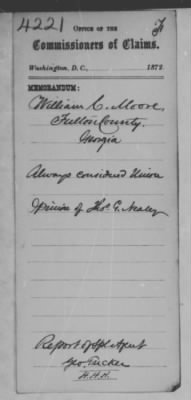 4221
OFFICE OF THE
Commissioners of Claims.
Washington, D. C., 1872.
MEMORANDUM:
William C. Moore,
Fulton County.
Georgia
Always considered Union
of Thos G. Healey
Report of Spl Agent
Geo. Tucker
H.H.H.